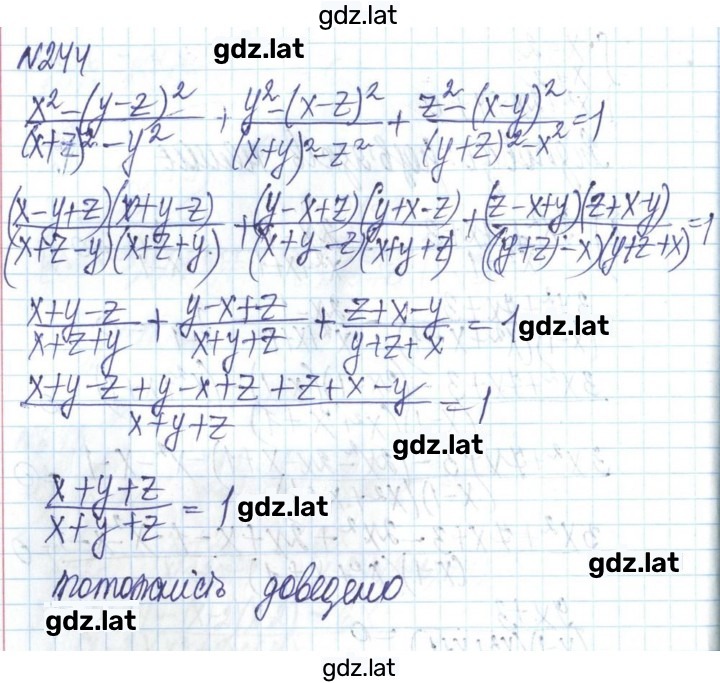 gdz.lat
N244 gdz.lat
(x² - (y-z)²)/((x+z)² - y²) + (y² - (x-z)²)/((x+y)² - z²) + (z² - (x-y)²)/((y+z)² - x²) = 1
((x-y+z)(x+y-z))/((x+z-y)(x+z+y)) + ((y-x+z)(y+x-z))/((x+y-z)(x+y+z)) + ((z-x+y)(z+x-y))/((y+z)-x)(y+z+x) = 1
(x+y-z)/(x+z+y) + (y-x+z)/(x+y+z) + (z+x-y)/(y+z+x) = 1 gdz.lat
(x+y-z+y-x+z+z+x-y)/(x+y+z) = 1
gdz.lat
(x+y+z)/(x+y+z) = 1 gdz.lat
gdz.lat
тотожність доведено
gdz.lat
gdz.lat